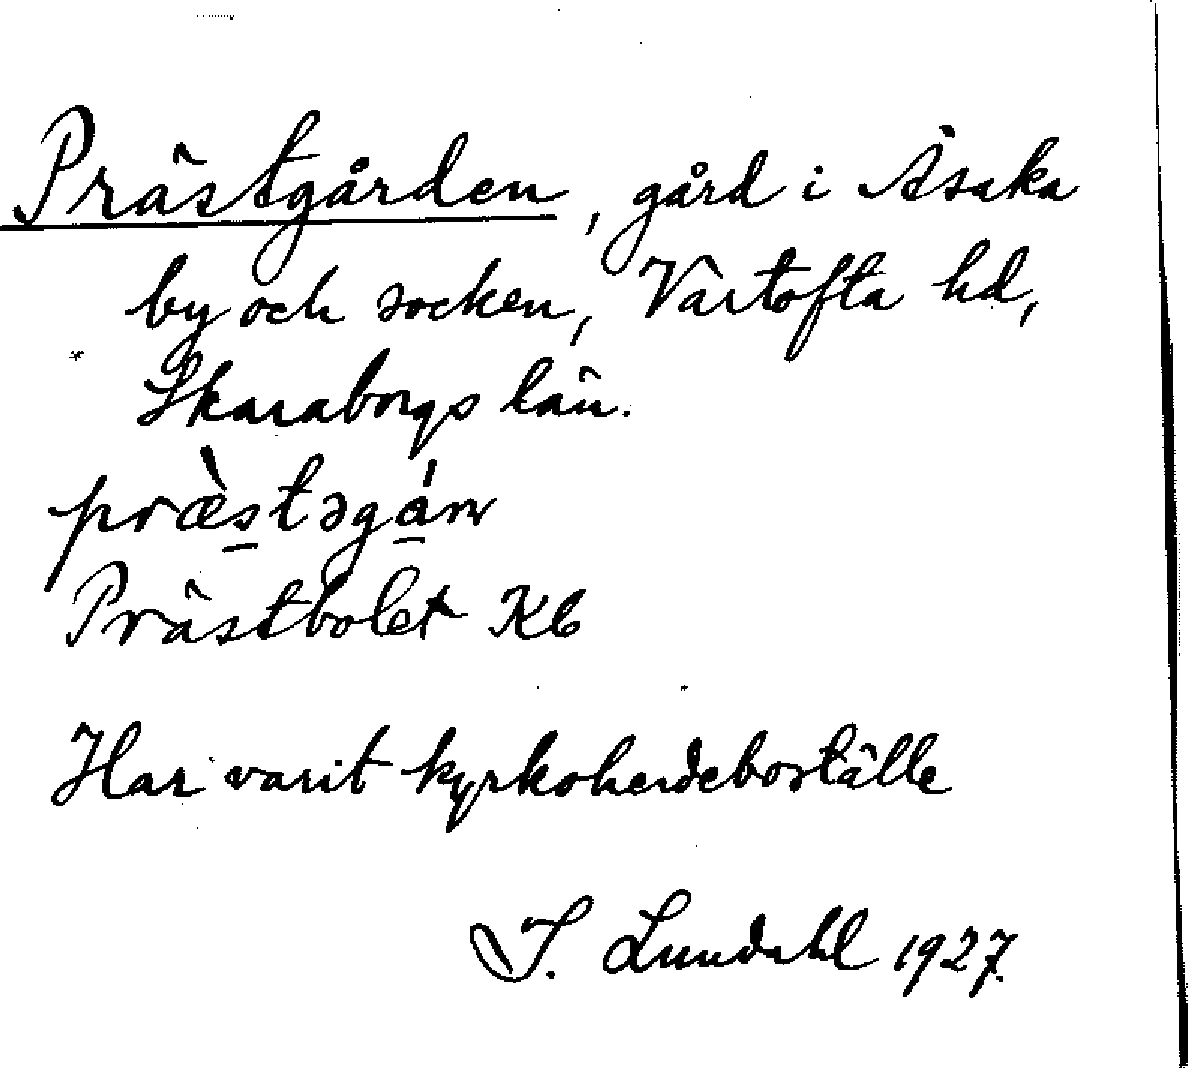 Prästgården, gård i Åsaka
by och socken, Vartofta hd,
Skaraborgs län.
præ̀stəgán
Prästbolet Kb
Har varit kyrkoherdeboställe
I. Lundahl 1927.